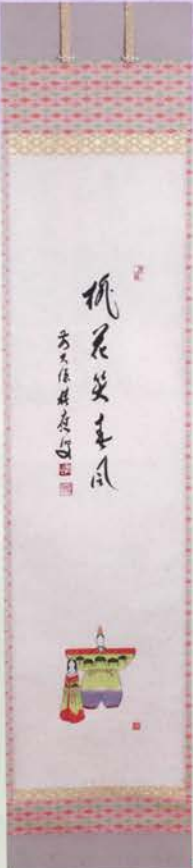 桃花笑春風
前大徳積應